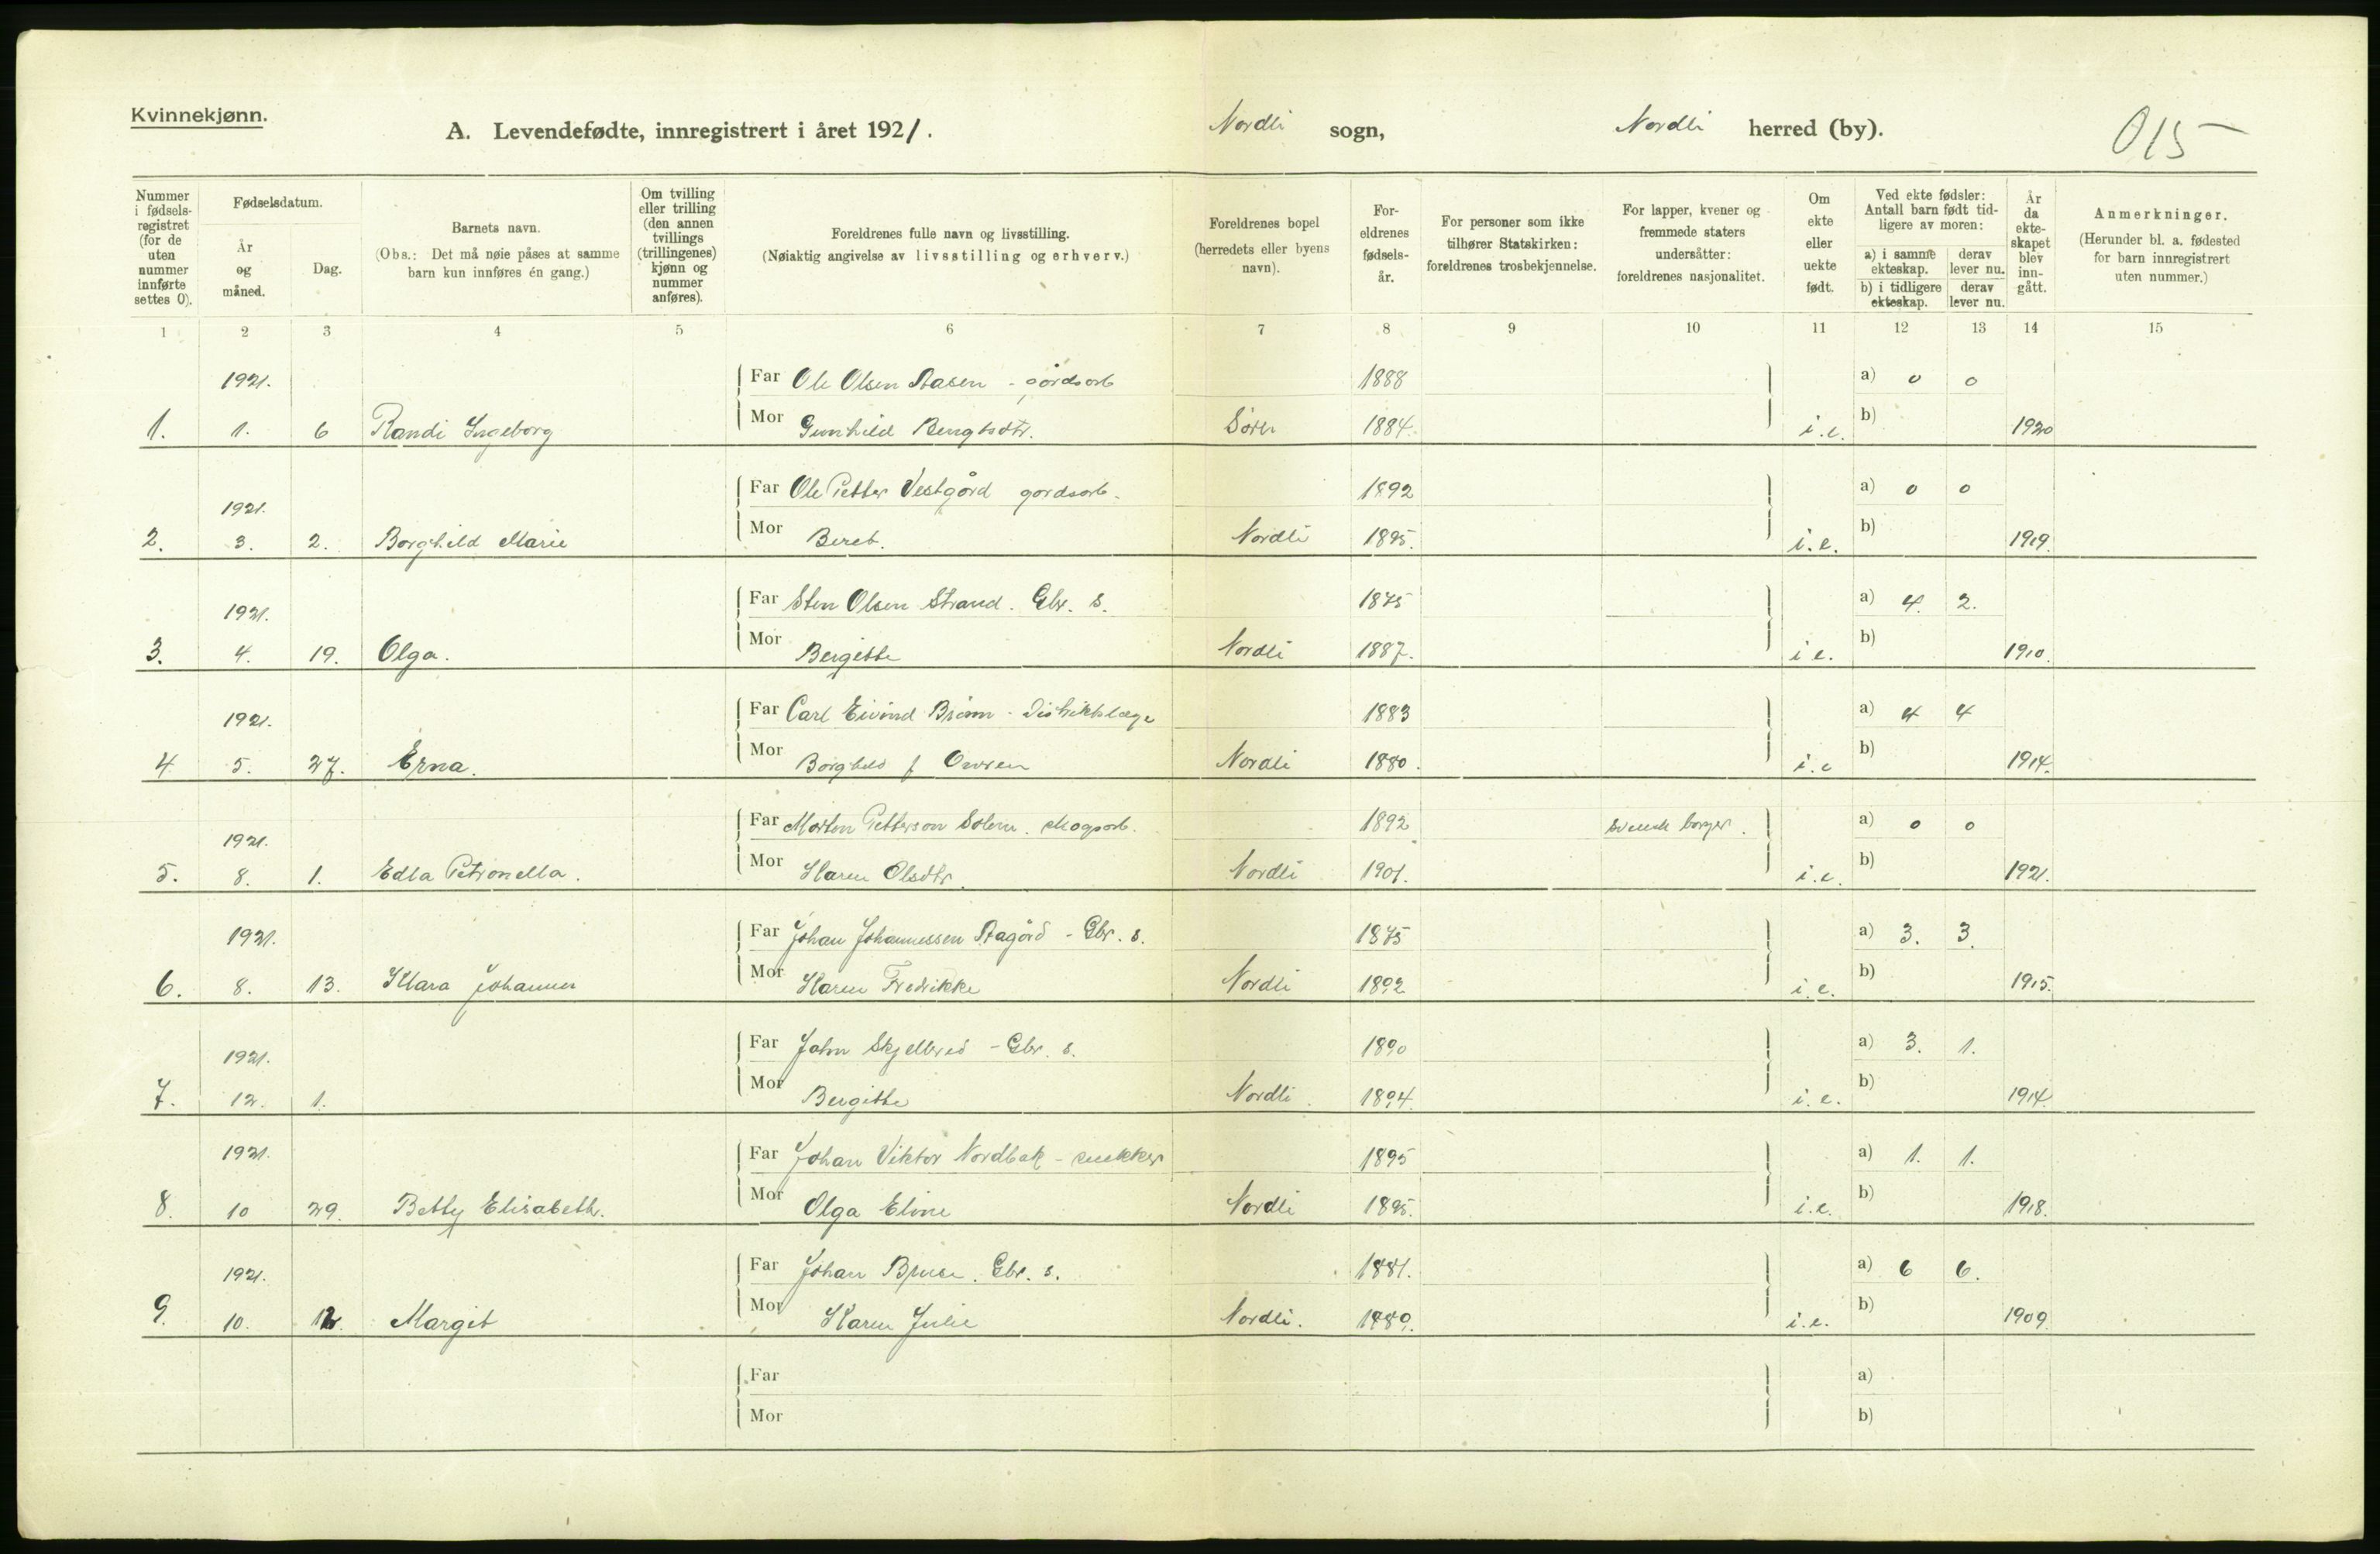 Kvinnekjønn.
A. Levendefødte, innregistrert i året 1921. Nordli sogn, Nordli herred (by). 015
Nummer i fødsels-registret (for de uten nummer innførte settes 0).
Fødselsdatum.
År og måned.
Dag.
Barnets navn.
(Obs.: Det må nøie påses at samme barn kun innføres én gang.)
Om tvilling eller trilling (den annen tvillings (trillingenes) kjønn og nummer anføres).
Foreldrenes fulle navn og livsstilling.
(Nøiaktig angivelse av livsstilling og erhverv.)
Foreldrenes bopel (herredets eller byens navn).
For-eldrenes fødsels-år.
For personer som ikke tilhører Statskirken: foreldrenes trosbekjennelse.
For lapper, kvener og fremmede staters undersåtter: foreldrenes nasjonalitet.
Om ekte eller uekte født.
Ved ekte fødsler: Antall barn født tid-ligere av moren:
a) i samme ekteskap. derav lever nu.
b) i tidligere ekteskap. derav lever nu.
År da ekte-skapet blev inn-gått.
Anmerkninger.
(Herunder bl. a. fødested for barn innregistrert uten nummer.)
1 2 3 4 5 6 7 8 9 10 11 12 13 14 15
1921. Far Ole Olsen Aasen - gårdsarb 1888 a) 0 0
1. 1. 6 Randi Ingeborg Mor Gunhild Bengtsdtr. Sørli 1884. i.e. b) 1920
1921. Far Ole Petter Vestgård gordsarb. 1892 a) 0 0
2. 3. 2. Borghild Marie Mor Beret. Nordli 1895. i.e. b) 1919.
1921. Far Sten Olsen Strand. Gbr. s. 1875 a) 4. 2.
3. 4. 19. Olga. Mor Bergitte Nordli 1887. i e. b) 1910.
1921. Far Carl Eivind - Distriktslæge 1883 a) 4 4
4 5. 27. Erna. Mor Borghild f Nordli 1880. i.e b) 1914.
1921. Far Morten Petterson Solem. skogsarb. 1892 svensk borger. a) 0 0
5. 8. 1. Edla Petronella. Mor Karen Olsdtr. Nordli 1901. i.e. b) 1921.
1921. Far Johan Johannessen Aagård - Gbr. s. 1875 a) 3. 3.
6. 8. 13. Klara Johanna Mor Karen Fredrikke Nordli 1892 i.e. b) 1915.
1921. Far John Skjelbred - Gbr. s. 1890 a) 3. 1.
7. 12. 1. Mor Bergitte Nordli. 1894. i.e. b) 1914.
1921. Far Johan Viktor Nordbak - snekker 1895 a) 1. 1.
8. 10 29. Betty Elisabeth. Mor Olga Eline Nordli 1895. i.e. b) 1918.
1921. Far Johan Gbr. s. 1881. a) 6 6.
9. 10. 12. Margit Mor Karen Julie Nordli. 1889. i.e. b) 1909.
Far a)
Mor b)